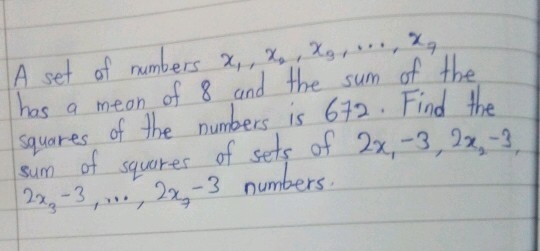 A set of numbers x₁, x₂, x₃, ..., x₉
has a mean of 8 and the sum of the
squares of the numbers is 672. Find the
sum of squares of sets of 2x₁-3, 2x₂-3,
2x₃-3, ..., 2x₉-3 numbers.